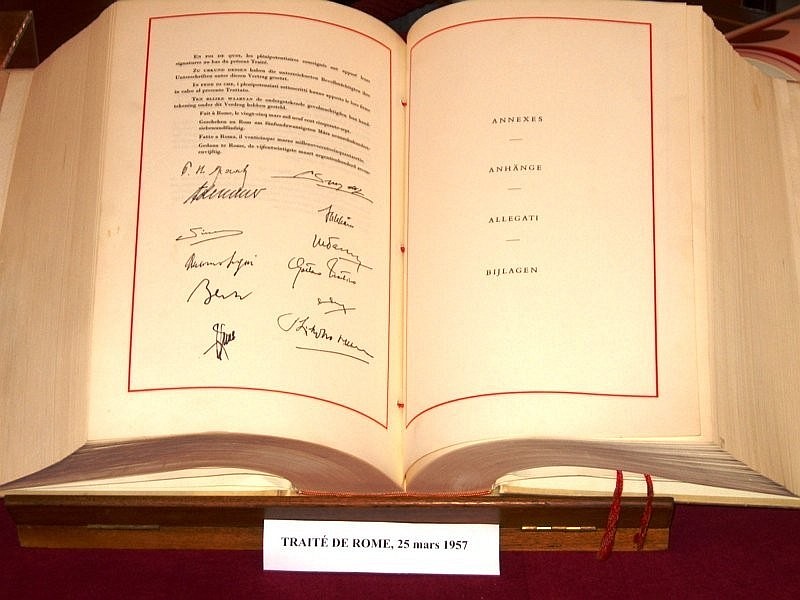 EN FOI DE QUOI, les plénipotentiaires soussignés ont apposé leurs
signatures au bas du présent Traité.
ZU URKUND DESSEN haben die unterzeichneten Bevollmächtigten ihre
Unterschriften unter diesen Vertrag gesetzt.
IN FEDE DI CHE, i plenipotenziari sottoscritti hanno apposto le loro firme
in calce al presente Trattato.
TEN BLIJKE WAARVAN de ondergetekende gevolmachtigden hun hand-
tekening onder dit Verdrag hebben gesteld.
Fait à Rome, le vingt-cinq mars mil neuf cent cinquante-sept.
Geschehen zu Rom am fünfundzwanzigsten März neunzehnhundert-
siebenundfünfzig.
Fatto a Roma, il venticinque marzo millenovecentocinquantasette.
Gedaan te Rome, de vijfentwintigste maart negentienhonderd zeven-
envijftig.
P. H. Spaak
ANNEXES
ANHÄNGE
ALLEGATI
BIJLAGEN
TRAITÉ DE ROME, 25 mars 1957